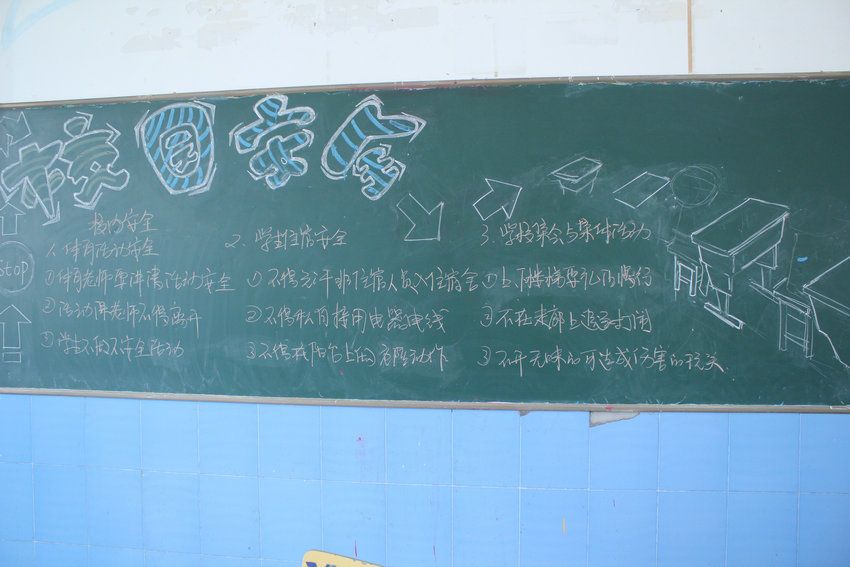 校园安全
校内安全
1.体育活动安全
①体育老师要讲清活动安全
②活动课老师不得离开
③学生不的不安全活动
stop
2.学生住宿安全
①不得允许非住宿人员入住宿舍
②不得私自接用电器电线
③不得在阳台上做危险动作
3.学校集会与集体活动
①上下楼梯要礼让慢行
③不在走廊上追逐打闹
③不开无味的可造成伤害的玩笑